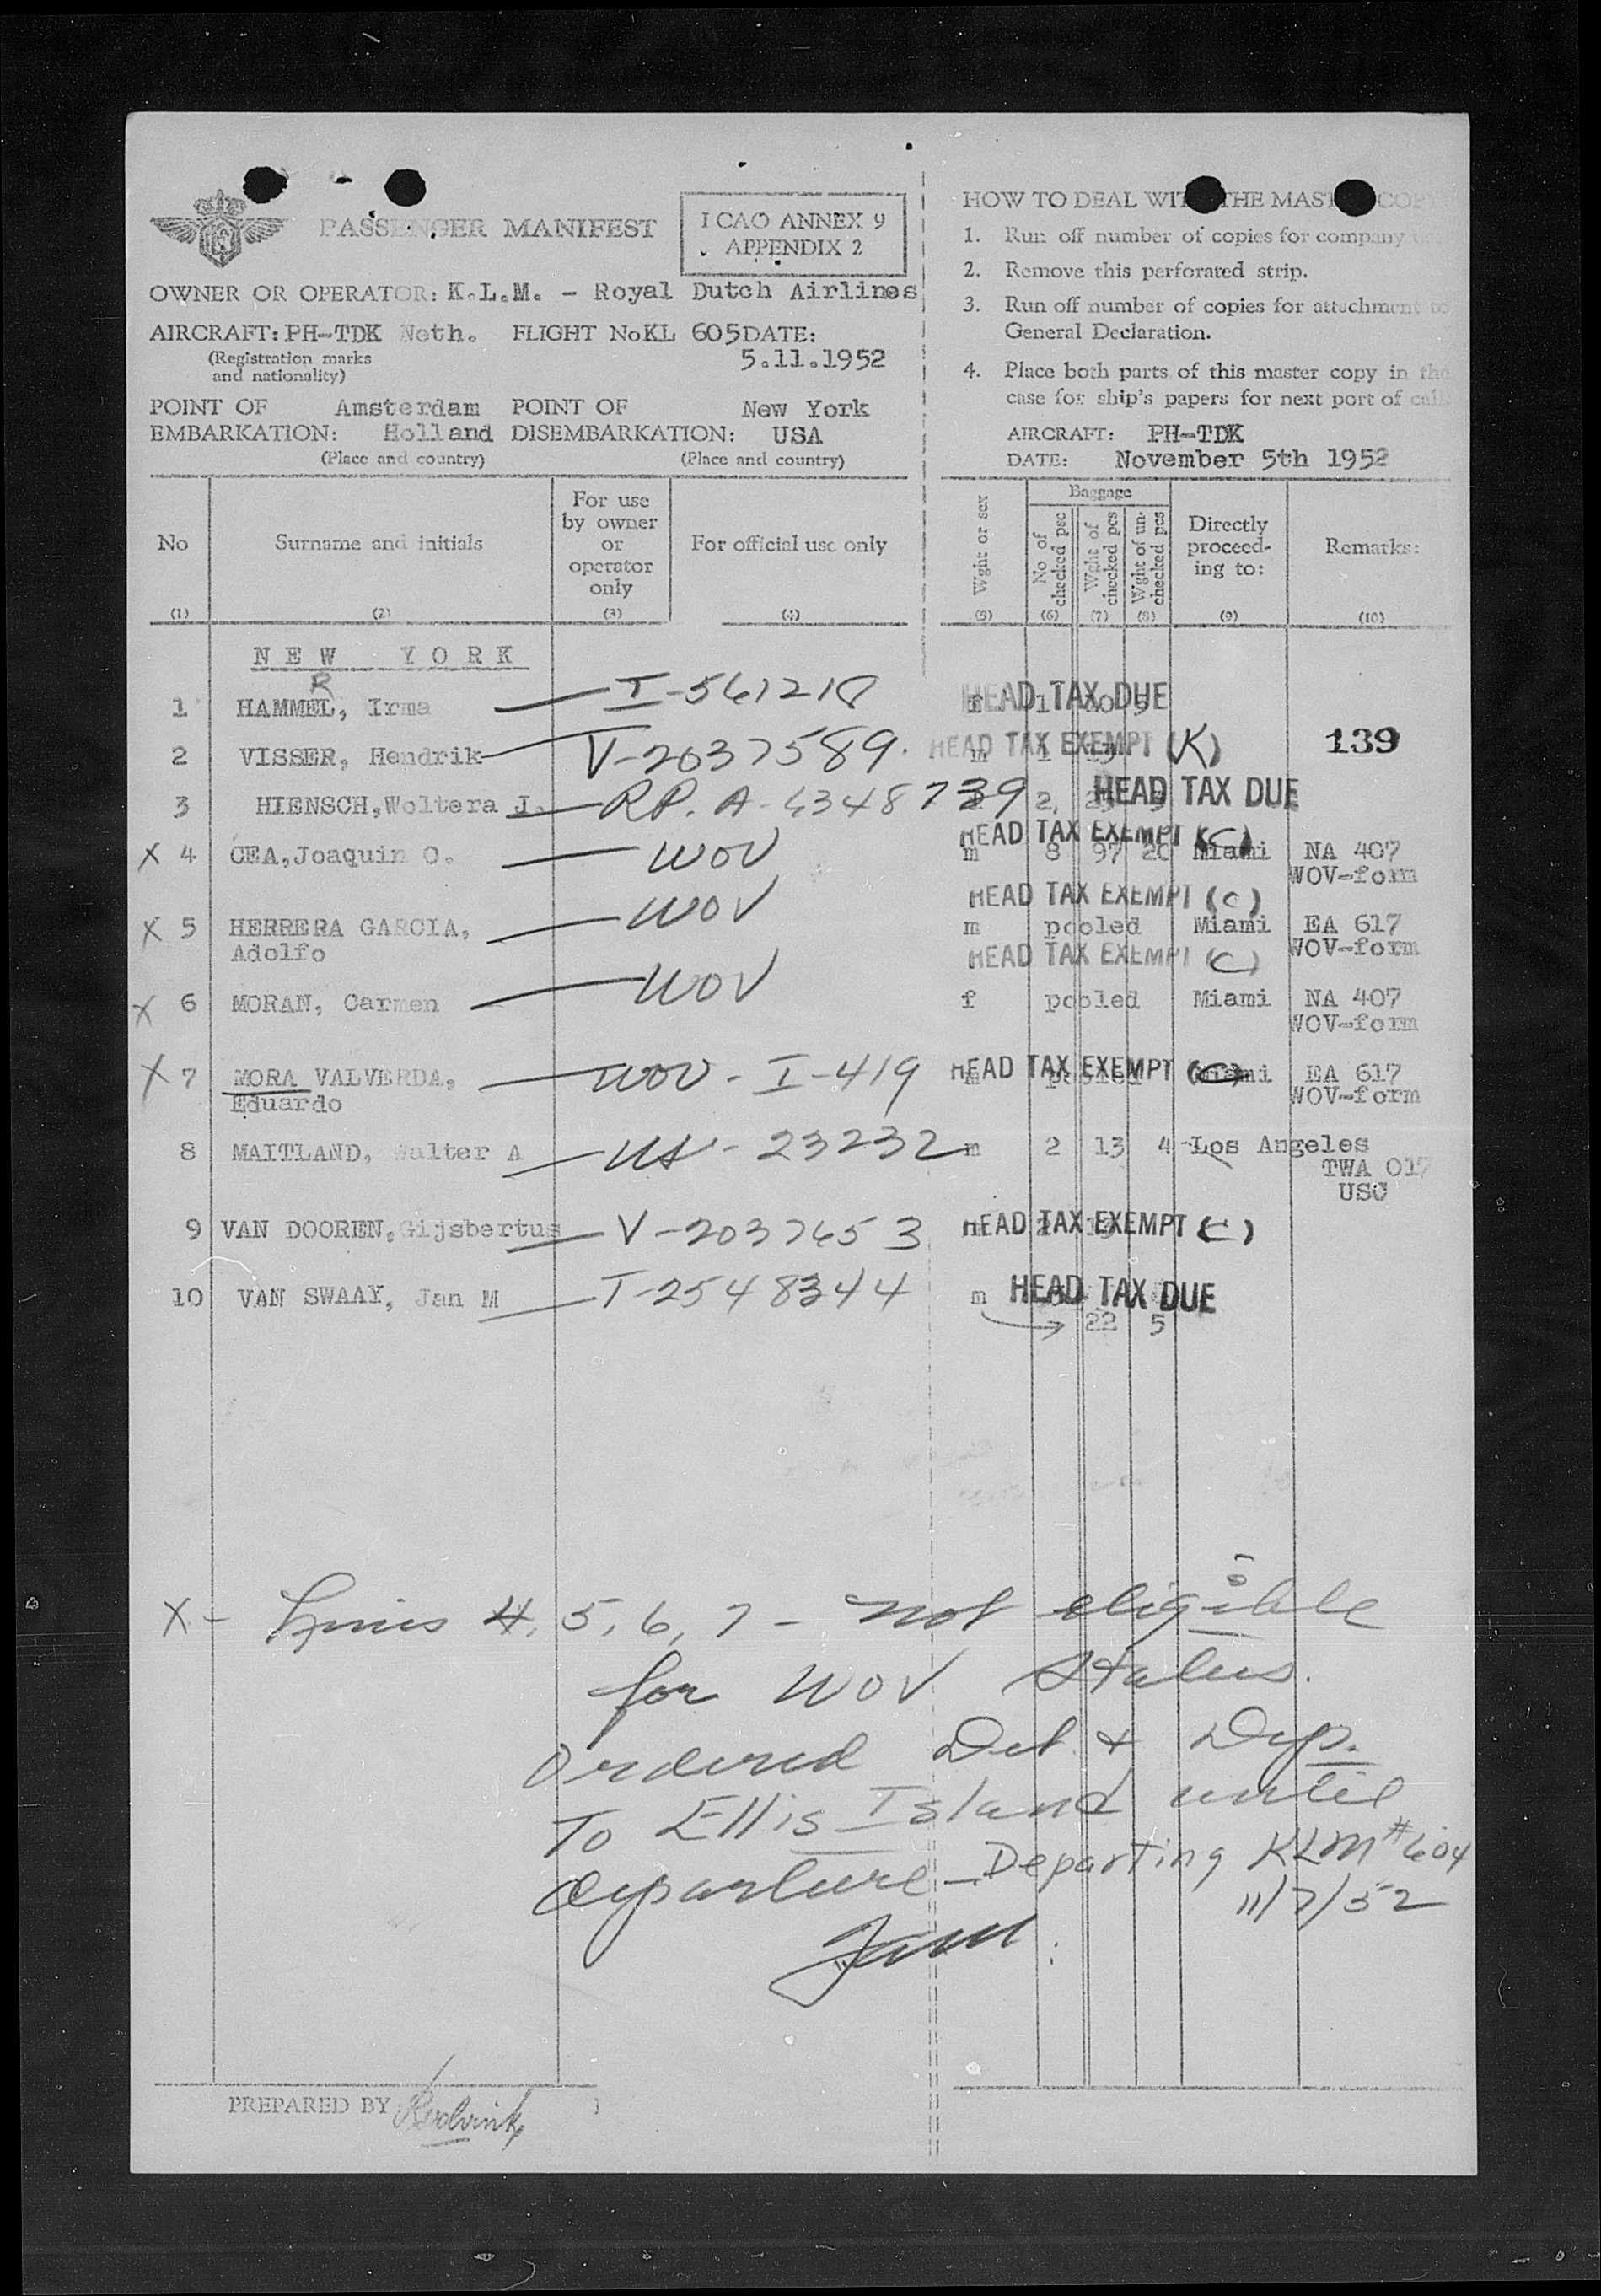 PASSENGER MANIFEST
I CAO ANNEX 9
APPENDIX 2
OWNER OR OPERATOR: K.L.M. - Royal Dutch Airlines
AIRCRAFT: PH-TDK Neth. FLIGHT No KL 605 DATE:
(Registration marks
and nationality)
5.11.1952
POINT OF Amsterdam POINT OF New York
EMBARKATION: Holland DISEMBARKATION: USA
(Place and country) (Place and country)
HOW TO DEAL WITH THE MASTER COPY
1. Run off number of copies for company
2. Remove this perforated strip.
3. Run off number of copies for attachment to
General Declaration.
4. Place both parts of this master copy in the
case for ship's papers for next port of call.
AIRCRAFT: PH-TDK
DATE: November 5th 1952
No
(1)
Surname and initials
(2)
For use
by owner
or
operator
only
(3)
For official use only
(4)
Wght or sex
(5)
Baggage
No of
checked psc
(6)
Wght of
checked pcs
(7)
Wght of un-
checked pcs
(8)
Directly
proceed-
ing to:
(9)
Remarks:
(10)
NEW YORK
R
1 HAMMEL, Irma I-561218 HEAD TAX DUE
2 VISSER, Hendrik V-2037589. m 1 HEAD TAX EXEMPT (K) 139
3 HIENSCH, Woltera J. RP. A-6348739 2 HEAD TAX DUE
HEAD TAX EXEMPT (C)
X 4 CEA, Joaquin O. WOV m 8 97 20 Miami NA 407
WOV-form
HEAD TAX EXEMPT (C)
X 5 HERRERA GARCIA, WOV m pooled Miami EA 617
Adolfo WOV-form
HEAD TAX EXEMPT (C)
X 6 MORAN, Carmen WOV f pooled Miami NA 407
WOV-form
X 7 MORA VALVERDA, WOV - I-419 HEAD TAX EXEMPT (C) Miami EA 617
Eduardo WOV-form
8 MAITLAND, Walter A US - 23232 m 2 13 4 Los Angeles
TWA 017
USC
9 VAN DOOREN, Gijsbertus V-2037653 HEAD TAX EXEMPT (C)
10 VAN SWAAY, Jan M T-2548344 m HEAD TAX DUE
22 5
X - Lines 4, 5, 6, 7 - not eligible
for WOV status.
Ordered Det. & Dep.
To Ellis Island until
departure - Departing KLM #604
11/7/52
PREPARED BY